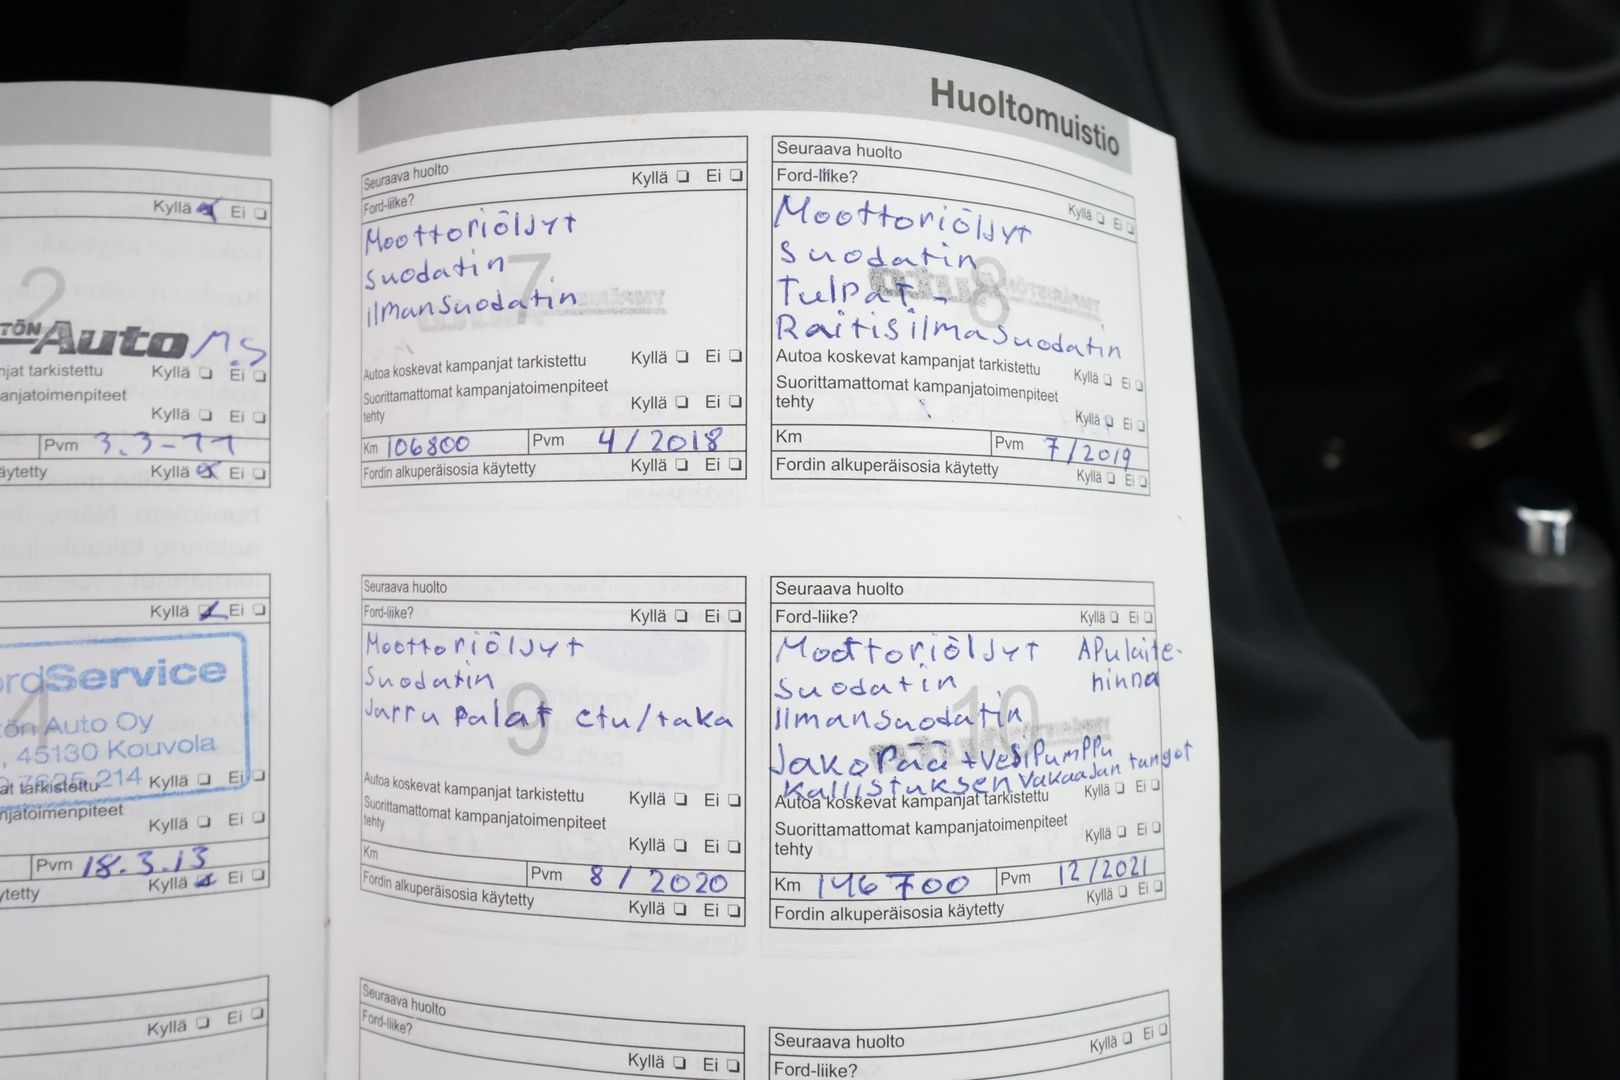 Huoltomuistio
Kyllä Ei
2
TÖN Auto M.S
njat tarkistettu Kyllä Ei
anjatoimenpiteet
Kyllä Ei
Pvm 3.3-11
äytetty Kyllä Ei
Kyllä Ei
ordService
4
tön Auto Oy
, 45130 Kouvola
7625 214
at tarkistettu Kyllä Ei
njatoimenpiteet
Kyllä Ei
Pvm 18.3.13
ytetty Kyllä Ei
Kyllä Ei
Seuraava huolto
Ford-liike? Kyllä Ei
7
Moottoriöljyt
Suodatin
ilmansuodatin
Autoa koskevat kampanjat tarkistettu Kyllä Ei
Suorittamattomat kampanjatoimenpiteet
tehty Kyllä Ei
Km 106800 Pvm 4/2018
Fordin alkuperäisosia käytetty Kyllä Ei
Seuraava huolto
Ford-liike? Kyllä Ei
8
Moottoriöljyt
Suodatin
Tulpat -
Raitisilmasuodatin
Autoa koskevat kampanjat tarkistettu Kyllä Ei
Suorittamattomat kampanjatoimenpiteet
tehty Kyllä Ei
Km Pvm 7/2019
Fordin alkuperäisosia käytetty Kyllä Ei
Seuraava huolto
Ford-liike? Kyllä Ei
9
Moottoriöljyt
Suodatin
Jarru palat etu/taka
Autoa koskevat kampanjat tarkistettu Kyllä Ei
Suorittamattomat kampanjatoimenpiteet
tehty Kyllä Ei
Km Pvm 8/2020
Fordin alkuperäisosia käytetty Kyllä Ei
Seuraava huolto
Ford-liike? Kyllä Ei
10
Moottoriöljyt Apulaite-
Suodatin hinna
Ilmansuodatin
Jakopää + vesipumppu
Kallistuksen vakaajan tangot
Autoa koskevat kampanjat tarkistettu Kyllä Ei
Suorittamattomat kampanjatoimenpiteet
tehty Kyllä Ei
Km 146700 Pvm 12/2021
Fordin alkuperäisosia käytetty Kyllä Ei
Seuraava huolto
Ford-liike? Kyllä Ei
Seuraava huolto
Ford-liike? Kyllä Ei